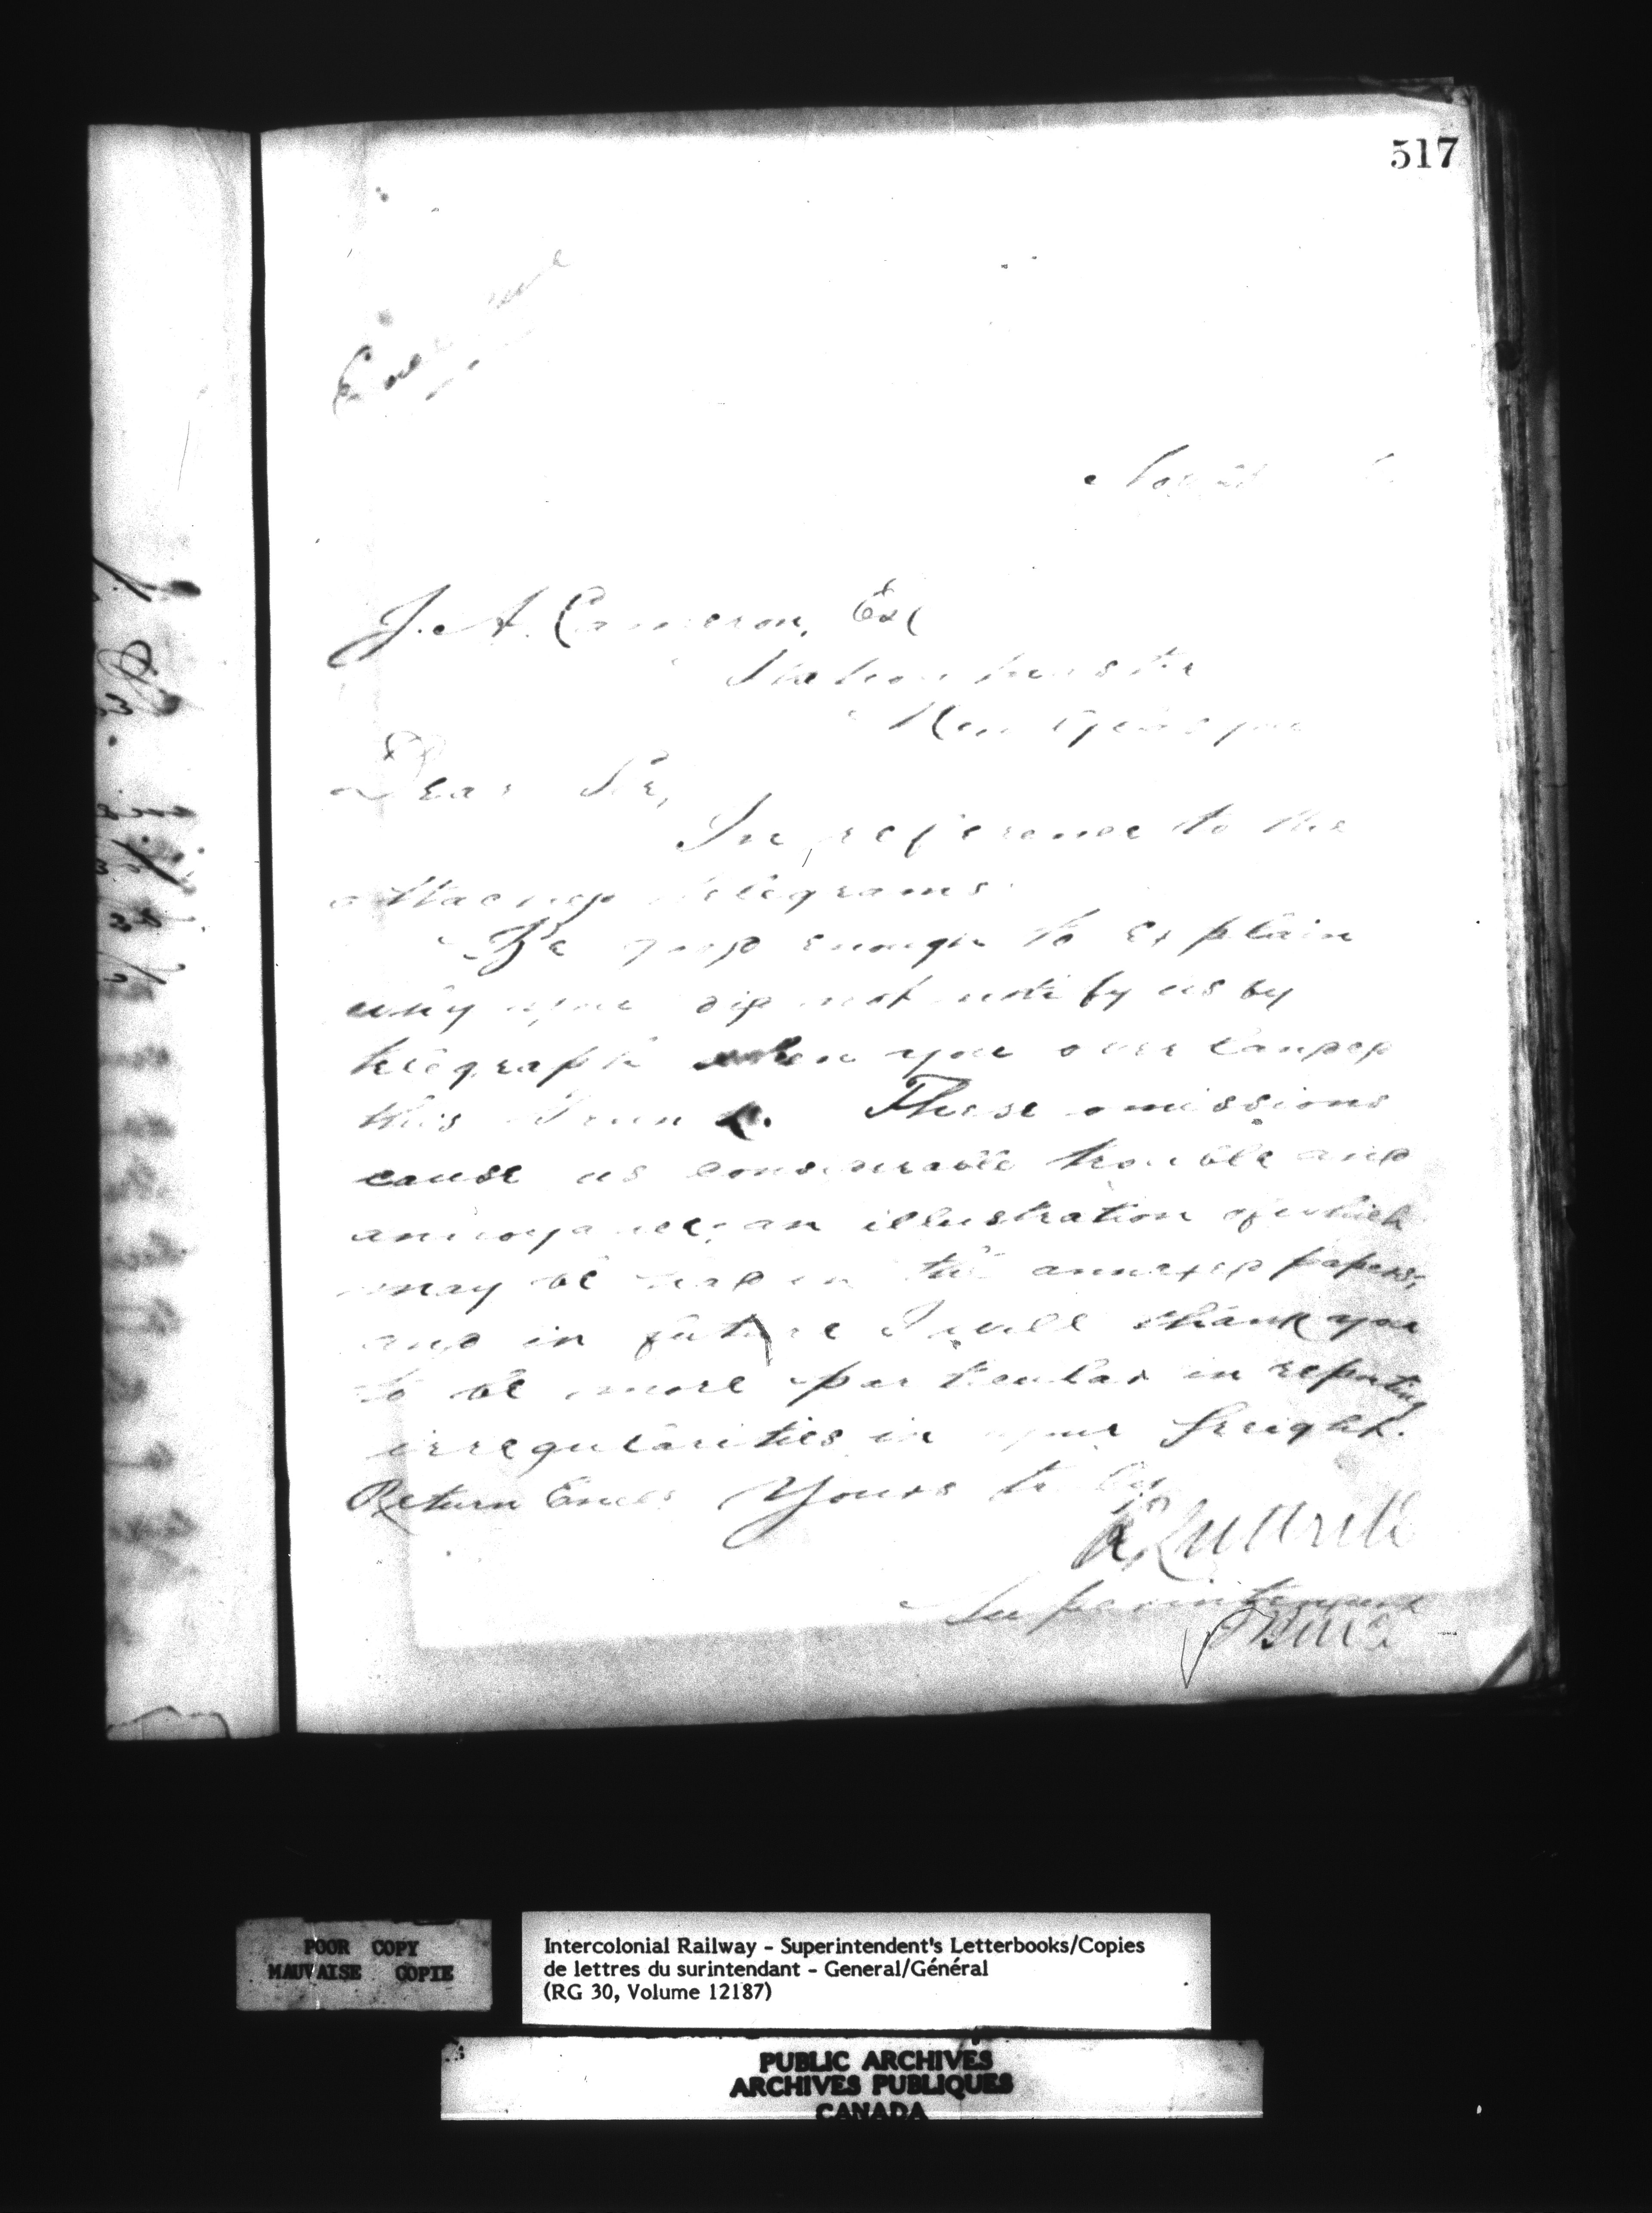 517
J. A. Cameron, Esq
Station Master
New Glasgow
Dear Sir,
In reference to the
attached telegrams.
Be good enough to explain
why you did not notify us by
telegraph when you over landed
this Trunk. These omissions
cause us considerable trouble and
annoyance; an illustration of which
may be had in the annexed papers,
and in future I will thank you
to be more particular in reporting
irregularities in your freight.
Return Encls Yours truly
R Luttrell
Superintendent
POOR COPY
MAUVAISE COPIE
Intercolonial Railway - Superintendent's Letterbooks/Copies
de lettres du surintendant - General/Général
(RG 30, Volume 12187)
PUBLIC ARCHIVES
ARCHIVES PUBLIQUES
CANADA